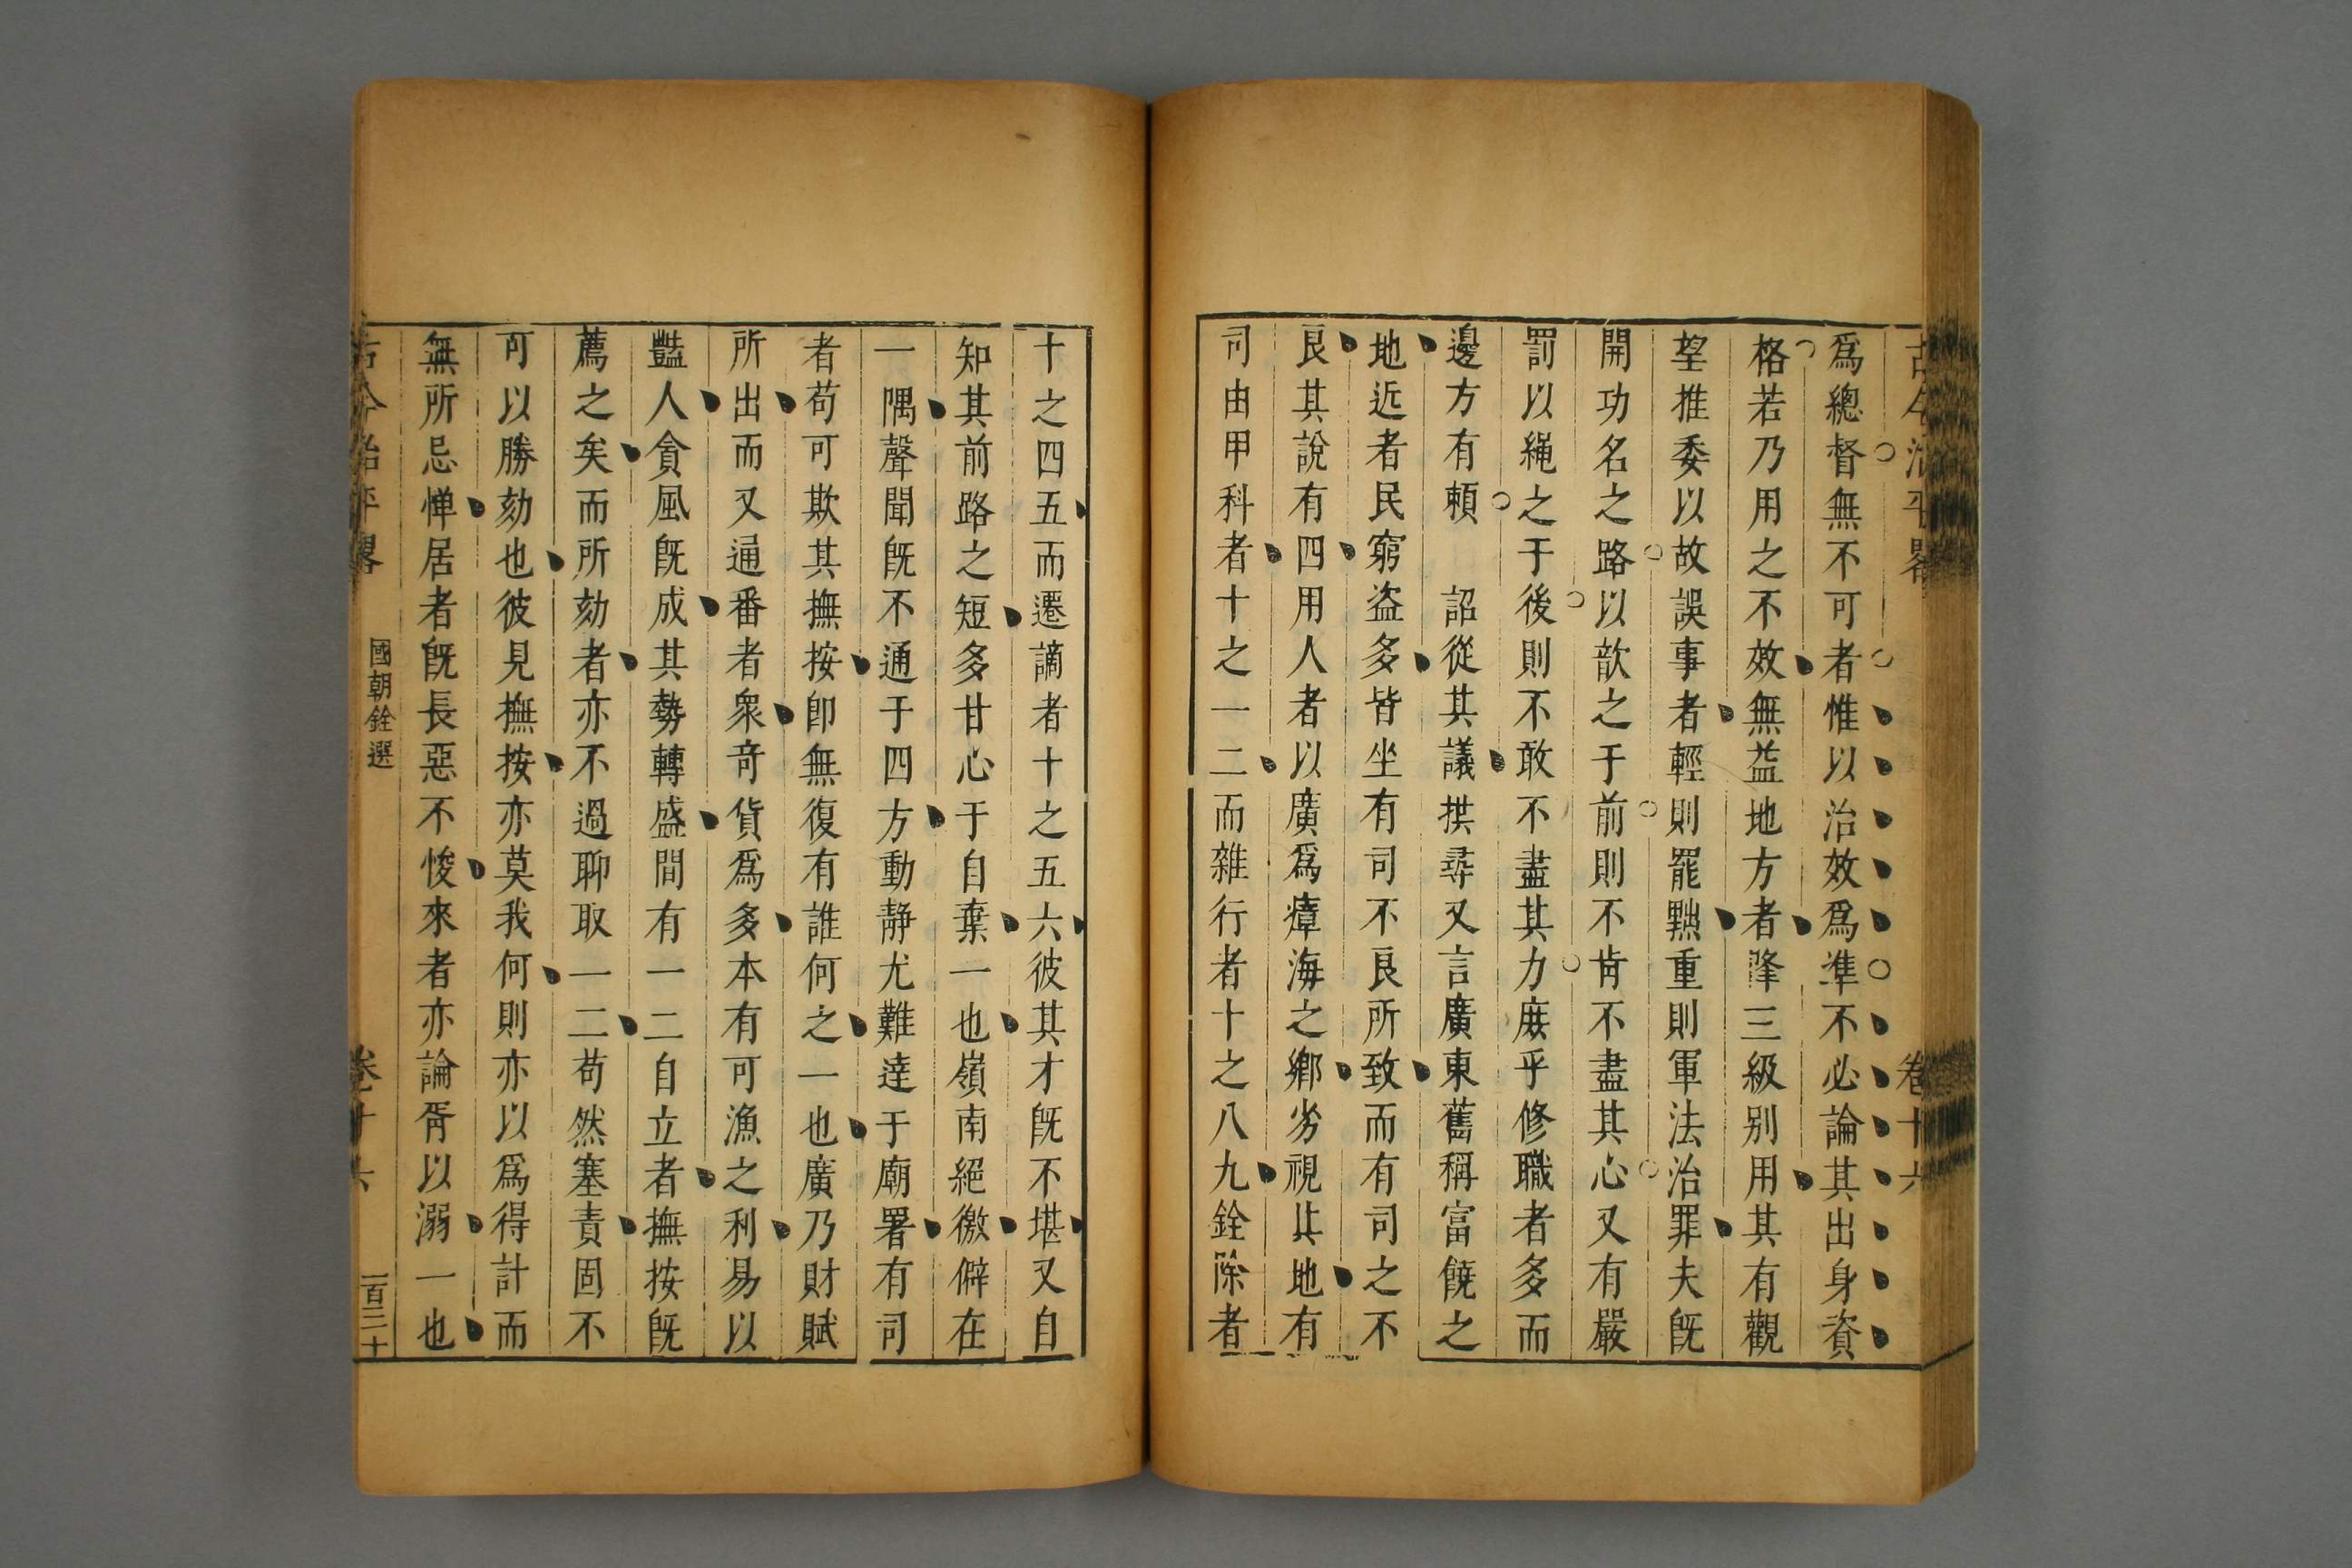 古今治平畧 卷十六
爲總督無不可者惟以治效爲準不必論其出身資
格若乃用之不效無益地方者降三級别用其有觀
望推委以故誤事者輕則罷黜重則軍法治罪夫旣
開功名之路以歆之于前則不肯不盡其心又有嚴
罰以繩之于後則不敢不盡其力庶乎修職者多而
邊方有頼　詔從其議拱尋又言廣東舊稱富饒之
地近者民窮盗多皆坐有司不良所致而有司之不
良其說有四用人者以廣爲瘴海之鄉劣視其地有
司由甲科者十之一二而雜行者十之八九銓除者
十之四五而遷謫者十之五六彼其才旣不堪又自
知其前路之短多甘心于自棄一也嶺南絕徼僻在
一隅聲聞旣不通于四方動靜尤難達于廟署有司
者苟可欺其撫按卽無復有誰何之一也廣乃財賦
所出而又通番者衆奇貨爲多本有可漁之利易以
豔人貪風旣成其勢轉盛間有一二自立者撫按旣
薦之矣而所劾者亦不過聊取一二苟然塞責固不
可以勝劾也彼見撫按亦莫我何則亦以爲得計而
無所忌憚居者旣長惡不悛來者亦論胥以溺一也
古今治平畧 國朝銓選 卷十六 一百三十